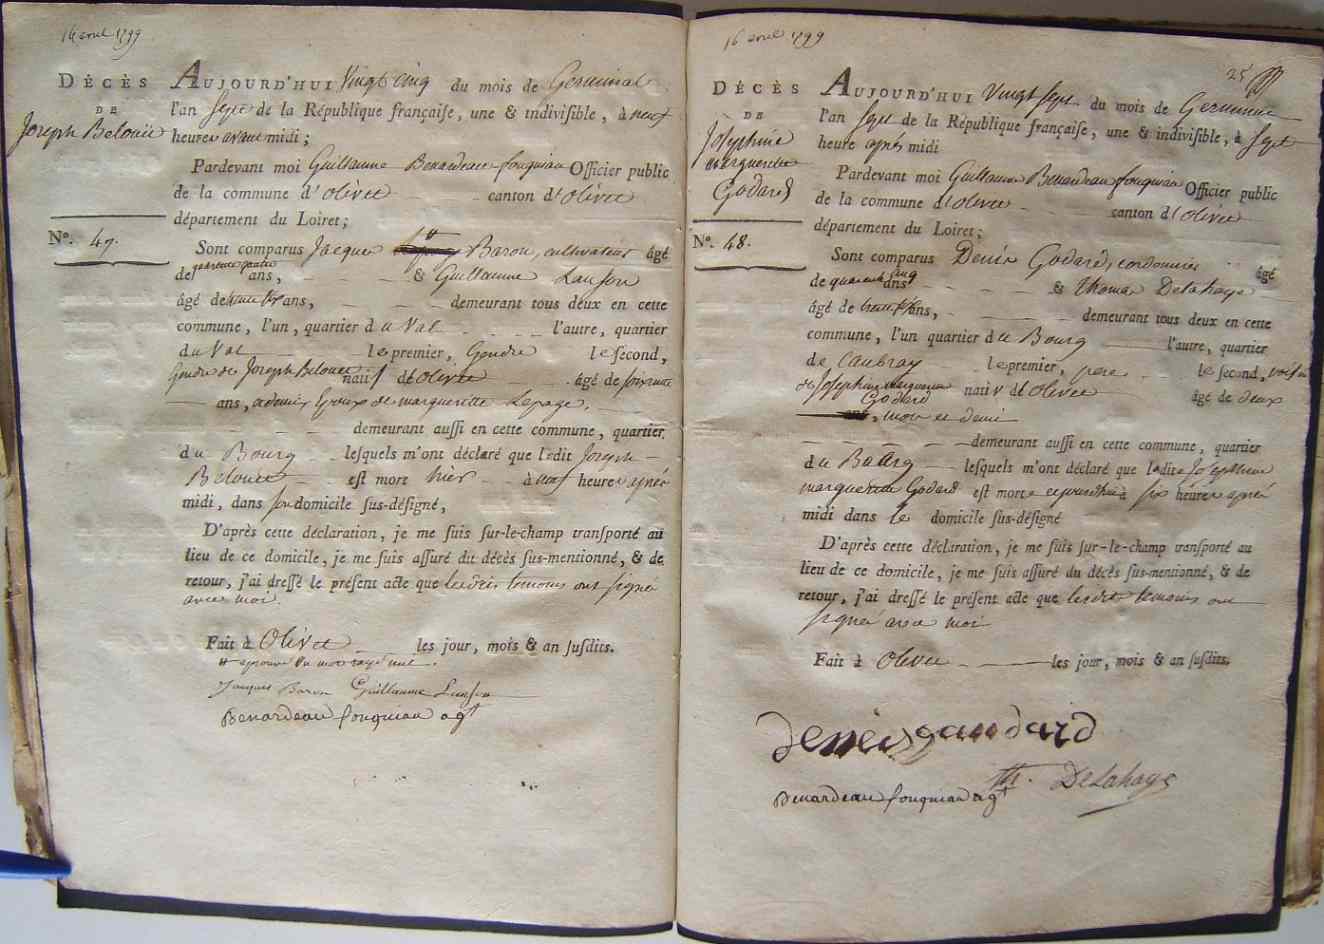 14 avril 1799
DÉCÈS
DE
Joseph Belouet
N°. 47.
AUJOURD'HUI Vingt cinq du mois de Germinal
l'an Sept de la République françaiſe, une & indiviſible, à neuf
heures avant midi;
Pardevant moi Guillaume Benardeau fouquiau Officier public
de la commune d'Olivet canton d'Olivet
département du Loiret;
Sont comparus Jacques Baron, cultivateur âgé
de quarante quatre ans, & Guillaume Lanson
âgé de ans, demeurant tous deux en cette
commune, l'un, quartier du Val l'autre, quartier
du Val le premier, Gendre le ſecond,
Gendre de Joseph Belouet natif d'Olivet âgé de soixante
ans, époux de margueritte Lepage,
demeurant auſſi en cette commune, quartier
du Bourg leſquels m'ont déclaré que ledit Joseph
Belouet eſt mort hier à neuf heures après
midi, dans son domicile ſus-déſigné,
D'après cette déclaration, je me ſuis ſur-le-champ tranſporté au
lieu de ce domicile, je me ſuis aſſuré du décès ſus-mentionné, & de
retour, j'ai dreſſé le préſent acte que lesdits temoins ont signé
avec moi.
Fait à Olivet les jour, mois & an ſuſdits.
# aprouvé un mot rayé nul.
Jacques Baron Guillaume Lanson
Benardeau fouquiau agt
16 avril 1799
25
DÉCÈS
DE
Josephine
margueritte
Godard
N°. 48.
AUJOURD'HUI Vingt sept du mois de Germinal
l'an sept de la République françaiſe, une & indiviſible, à sept
heure après midi
Pardevant moi Guillaume Benardeau fouquiau Officier public
de la commune d'Olivet canton d'Olivet
département du Loiret;
Sont comparus Denis Godard, cordonnier âgé
de quarante cinq ans & Thomas Delahaye
âgé de ans, demeurant tous deux en cette
commune, l'un quartier du Bourg l'autre, quartier
de Caubray le premier, pere le ſecond, voisin
de Josephine marguerite Godard native d'Olivet âgé de deux
mois et demi
demeurant auſſi en cette commune, quartier
du Bourg leſquels m'ont déclaré que ladite Josephine
marguerite Godard eſt morte aujourdhui à six heures après
midi dans le domicile ſus-déſigné
D'après cette déclaration, je me ſuis ſur-le-champ tranſporté au
lieu de ce domicile, je me ſuis aſſuré du décès ſus-mentionné, & de
retour, j'ai dreſſé le préſent acte que lesdits temoins ont
signé avec moi
Fait à Olivet les jour, mois & an ſuſdits.
denis gaudard
th. Delahaye
Benardeau fouquiau agt